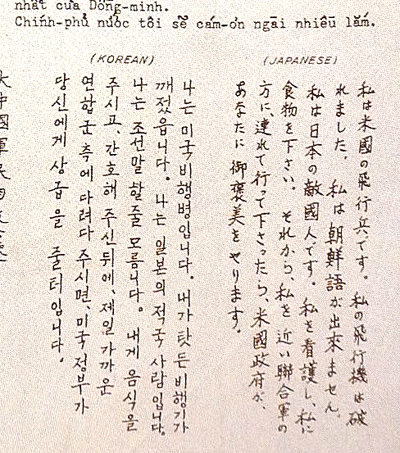 nhất của Dồng-minh.
Chính-phủ nước tôi sẽ cám-ơn ngài nhiều lắm.
(KOREAN)
나는 미국비행병입니다. 내가 탓든 비행기가
깨졌읍니다. 나는 일본의 적국 사람입니다.
나는 조선말 할줄 모릅니다. 내게 음식을
주시고, 간호해 주신뒤에, 제일 가까운
연합군 측에 다려다 주시면, 미국 정부가
당신에게 상급을 줄터입니다.
(JAPANESE)
私は米國の飛行兵です。私の飛行機は破
れました。私は朝鮮語が出來ません。
私は日本の敵國人です。私を看護し、私に
食物を下さい。それから、私を近い聯合軍の
方に、連れて行って下さったら、米國政府が、
あなたに御褒美をやります。